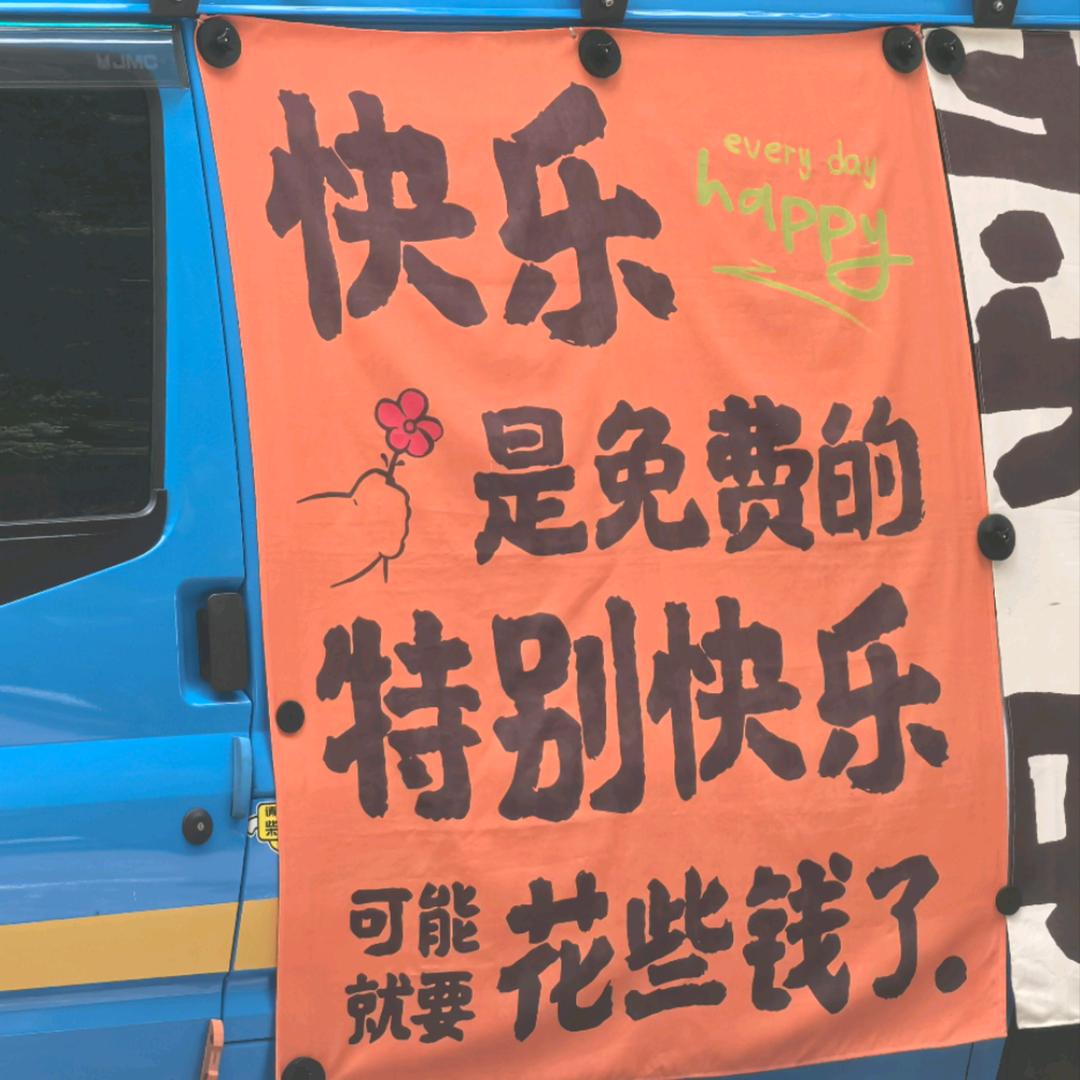 JMC
快乐
every day
happy
是免费的
特别快乐
可能
就要
花些钱了.